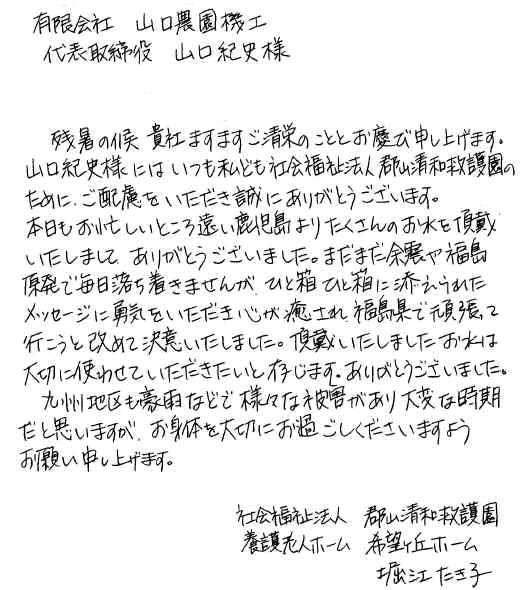 有限会社 山口農園機工
代表取締役 山口紀史様
残暑の候 貴社ますますご清栄のこととお慶び申し上げます。
山口紀史様にはいつも私ども社会福祉法人郡山清和救護園の
ために、ご配慮をいただき誠にありがとうございます。
本日もお忙しいところ遠い鹿児島よりたくさんのお水を頂戴
いたしまして、ありがとうございました。まだまだ余震や福島
原発で毎日落ち着きませんが、ひと箱ひと箱に添えられた
メッセージに勇気をいただき心が癒され、福島県で頑張って
行こうと改めて決意いたしました。頂戴いたしましたお水は
大切に使わせていただきたいと存じます。ありがとうございました。
九州地区も豪雨などで様々な被害があり大変な時期
だと思いますが、お身体を大切にお過ごしくださいますよう
お願い申し上げます。
社会福祉法人 郡山清和救護園
養護老人ホーム 希望ヶ丘ホーム
堀江たき子